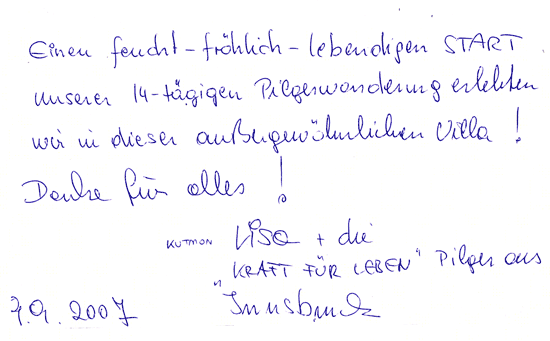 Einen feucht-fröhlich-lebendigen START
unserer 14-tägigen Pilgerwanderung erlebten
wir in dieser außergewöhnlichen Villa !
Danke für alles !
KUTMON Lisa + die
"KRAFT FÜR LEBEN" Pilger aus
7.9.2007 Innsbruck